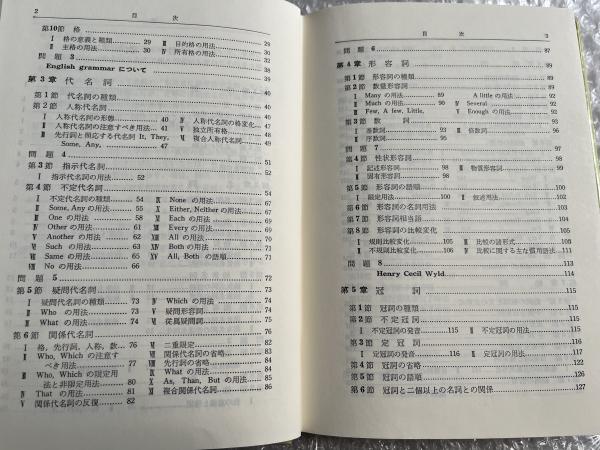 2
目次
第10節 格 29
I 格の意義と種類 29 III 目的格の用法 29
II 主格の用法 30 IV 所有格の用法 30
問題 3 38
English grammar について 39
第3章 代名詞 40
第1節 代名詞の種類 40
第2節 人称代名詞 40
I 人称代名詞の形態 40 IV 人称代名詞の格変化
II 人称代名詞の注意すべき用法 41 V 独立所有格
III 先行詞と照応する代名詞 It, They, VI 複合人称代名詞
Some, Any, 47
問題 4 51
第3節 指示代名詞 52
I 指示代名詞の用法 52
第4節 不定代名詞 54
I 不定代名詞の種類 54 IX None の用法 67
II Some, Any の用法 55 X Either, Neither の用法
III One の用法 58 XI Each の用法
IV Other の用法 61 XII Every の用法
V Another の用法 62 XIII All の用法
VI Such の用法 63 XIV Both の用法
VII Same の用法 65 XV All, Both の語順
VIII No の用法 66
問題 5 72
第5節 疑問代名詞 73
I 疑問代名詞の種類 73 IV Which の用法
II Who の用法 73 V 疑問形容詞
III What の用法 74 VI 従属疑問詞
第6節 関係代名詞 76
I 格，先行詞，人称，数 76 VI 二重限定 82
II Who, Which の注意す VII 関係代名詞の省略
べき用法 77 VIII 先行詞の省略
III Who, Which の限定用 IX What の用法
法と非限定用法 80 X As, Than, But の用法 85
IV That の用法 81 XI 複合関係代名詞 86
V 関係代名詞の反復 82
目次
3
問題 6 87
第4章 形容詞
第1節 形容詞の種類
第2節 数量形容詞
I Many の用法 A little の用法 92
II Much の用法 90 IV Several 92
III Few, A few, Little, V Enough の用法 92
第3節 数詞
I 基数詞 III 倍数詞
II 序数詞
問題 7
第4節 性状形容詞 98
I 記述形容詞 98 III 物質形容詞
II 固有形容詞
第5節 形容詞の語順 100
I 限定用法 100 II 叙述用法
第6節 形容詞の名詞用法
第7節 形容詞相当語 104
第8節 形容詞の比較変化
I 規則比較変化 105 III 比較の諸形式 106
II 不規則比較変化 106 IV 比較に関する主な慣用語法 111
問題 8 113
Henry Cecil Wyld 114
第5章 冠詞 115
第1節 冠詞の種類 115
第2節 不定冠詞 115
I 不定冠詞の発音 115 II 不定冠詞の用法
第3節 定冠詞 116
I 定冠詞の発音 116 II 定冠詞の用法 117
第4節 冠詞の省略
第5節 冠詞の語順 126
第6節 冠詞と二個以上の名詞との関係 127